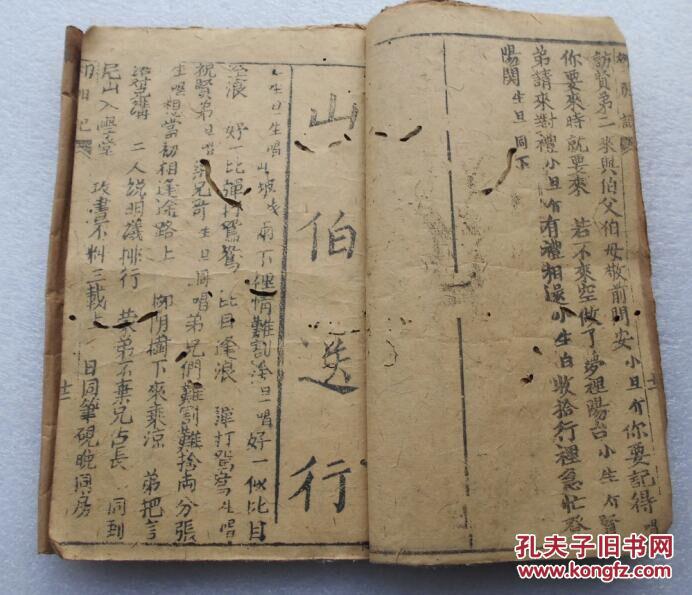 訪賢弟二來與伯父伯母敬前問安小旦介你要記得
你要來時就要來 若不來空做了夢裡陽台小生介賢
弟請來對禮小旦有禮相還小生白收拾行裡急忙啓
陽関生旦同下
山伯送行
小生旦生唱 山坡羊 兩下裡情難割捨旦唱好一似比目
逢浪 好一比彈打鴛鴦 比目逢浪 彈打鴛鴦生唱
祝賢弟旦唱梁兄哥生旦同唱弟兄們難割難捨両分張
生唱想當初相逢途路上 柳阴樹下來乘凉 弟把言
二人說明議排行 英弟不棄兄占長 同到
尼山入學堂 攻書不料三載上 日同筆硯晚同房
十二
孔夫子旧书网
www.kongfz.com